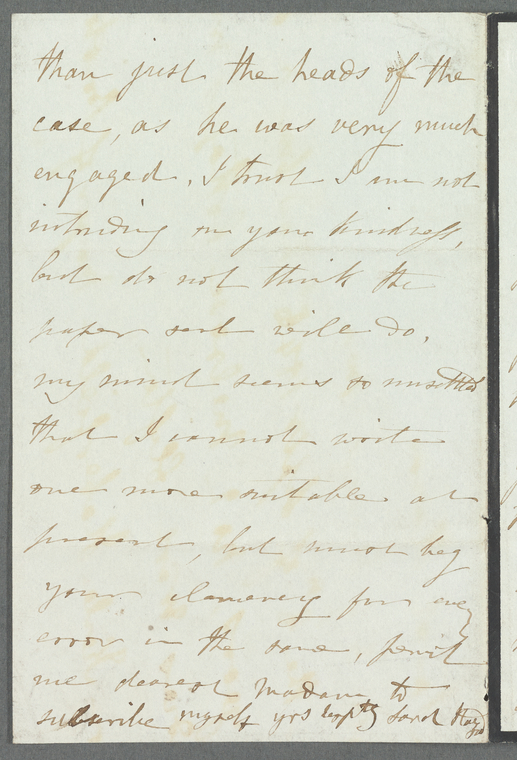 than just the heads of the
case, as he was very much
engaged, I trust I am not
intruding on your kindness,
but do not think the
paper sent will do,
my mind seems so unsettled
that I cannot write
one more suitable at
present, but must beg
your clemency for any
error in the same, permit
me dearest Madam to
subscribe myself yrs Sarah